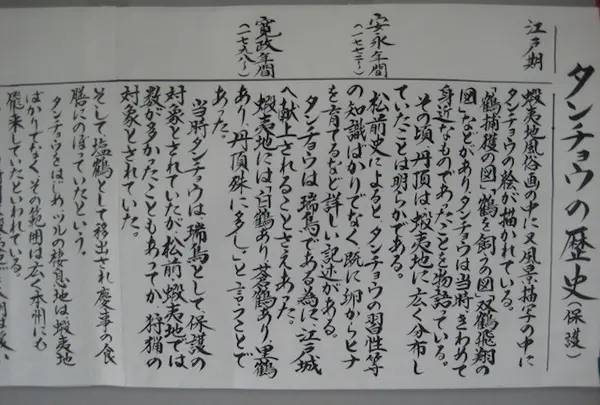 タンチョウの歴史（保護）
江戸期
蝦夷地風俗画の中に又風景描写の中に
タンチョウの絵が描かれている。
「鶴捕獲の図」「鶴を飼うの図」「双鶴飛翔の
図」などがありタンチョウは当時、きわめて
身近なものであったことを物語っている。
その頃、丹頂は蝦夷地に広く分布し
ていたことは明らかである。
安永年間
（一七七二〜）
松前史によると、タンチョウの習性等
の知識ばかりでなく既に卵からヒナ
を育てるなど詳しい記述がある。
タンチョウは瑞鳥である為に、江戸城
へ献上されることさえあった。
寛政年間
（一七九八〜）
蝦夷地には「白鶴あり、蒼鶴あり、黒鶴
あり、丹頂殊に多し。」と言うことで
あった。
当時タンチョウは、瑞鳥として、保護の
対象とされていたが、松前、蝦夷地では
数が多かったこともあってか、狩猟の
対象とされていた。
そして塩鶴として移出され慶事の食
膳にのぼっていたという。
タンチョウをはじめ、ツルの棲息地は蝦夷地
ばかりでなく、その範囲は広く本州にも
飛来していたといわれている。